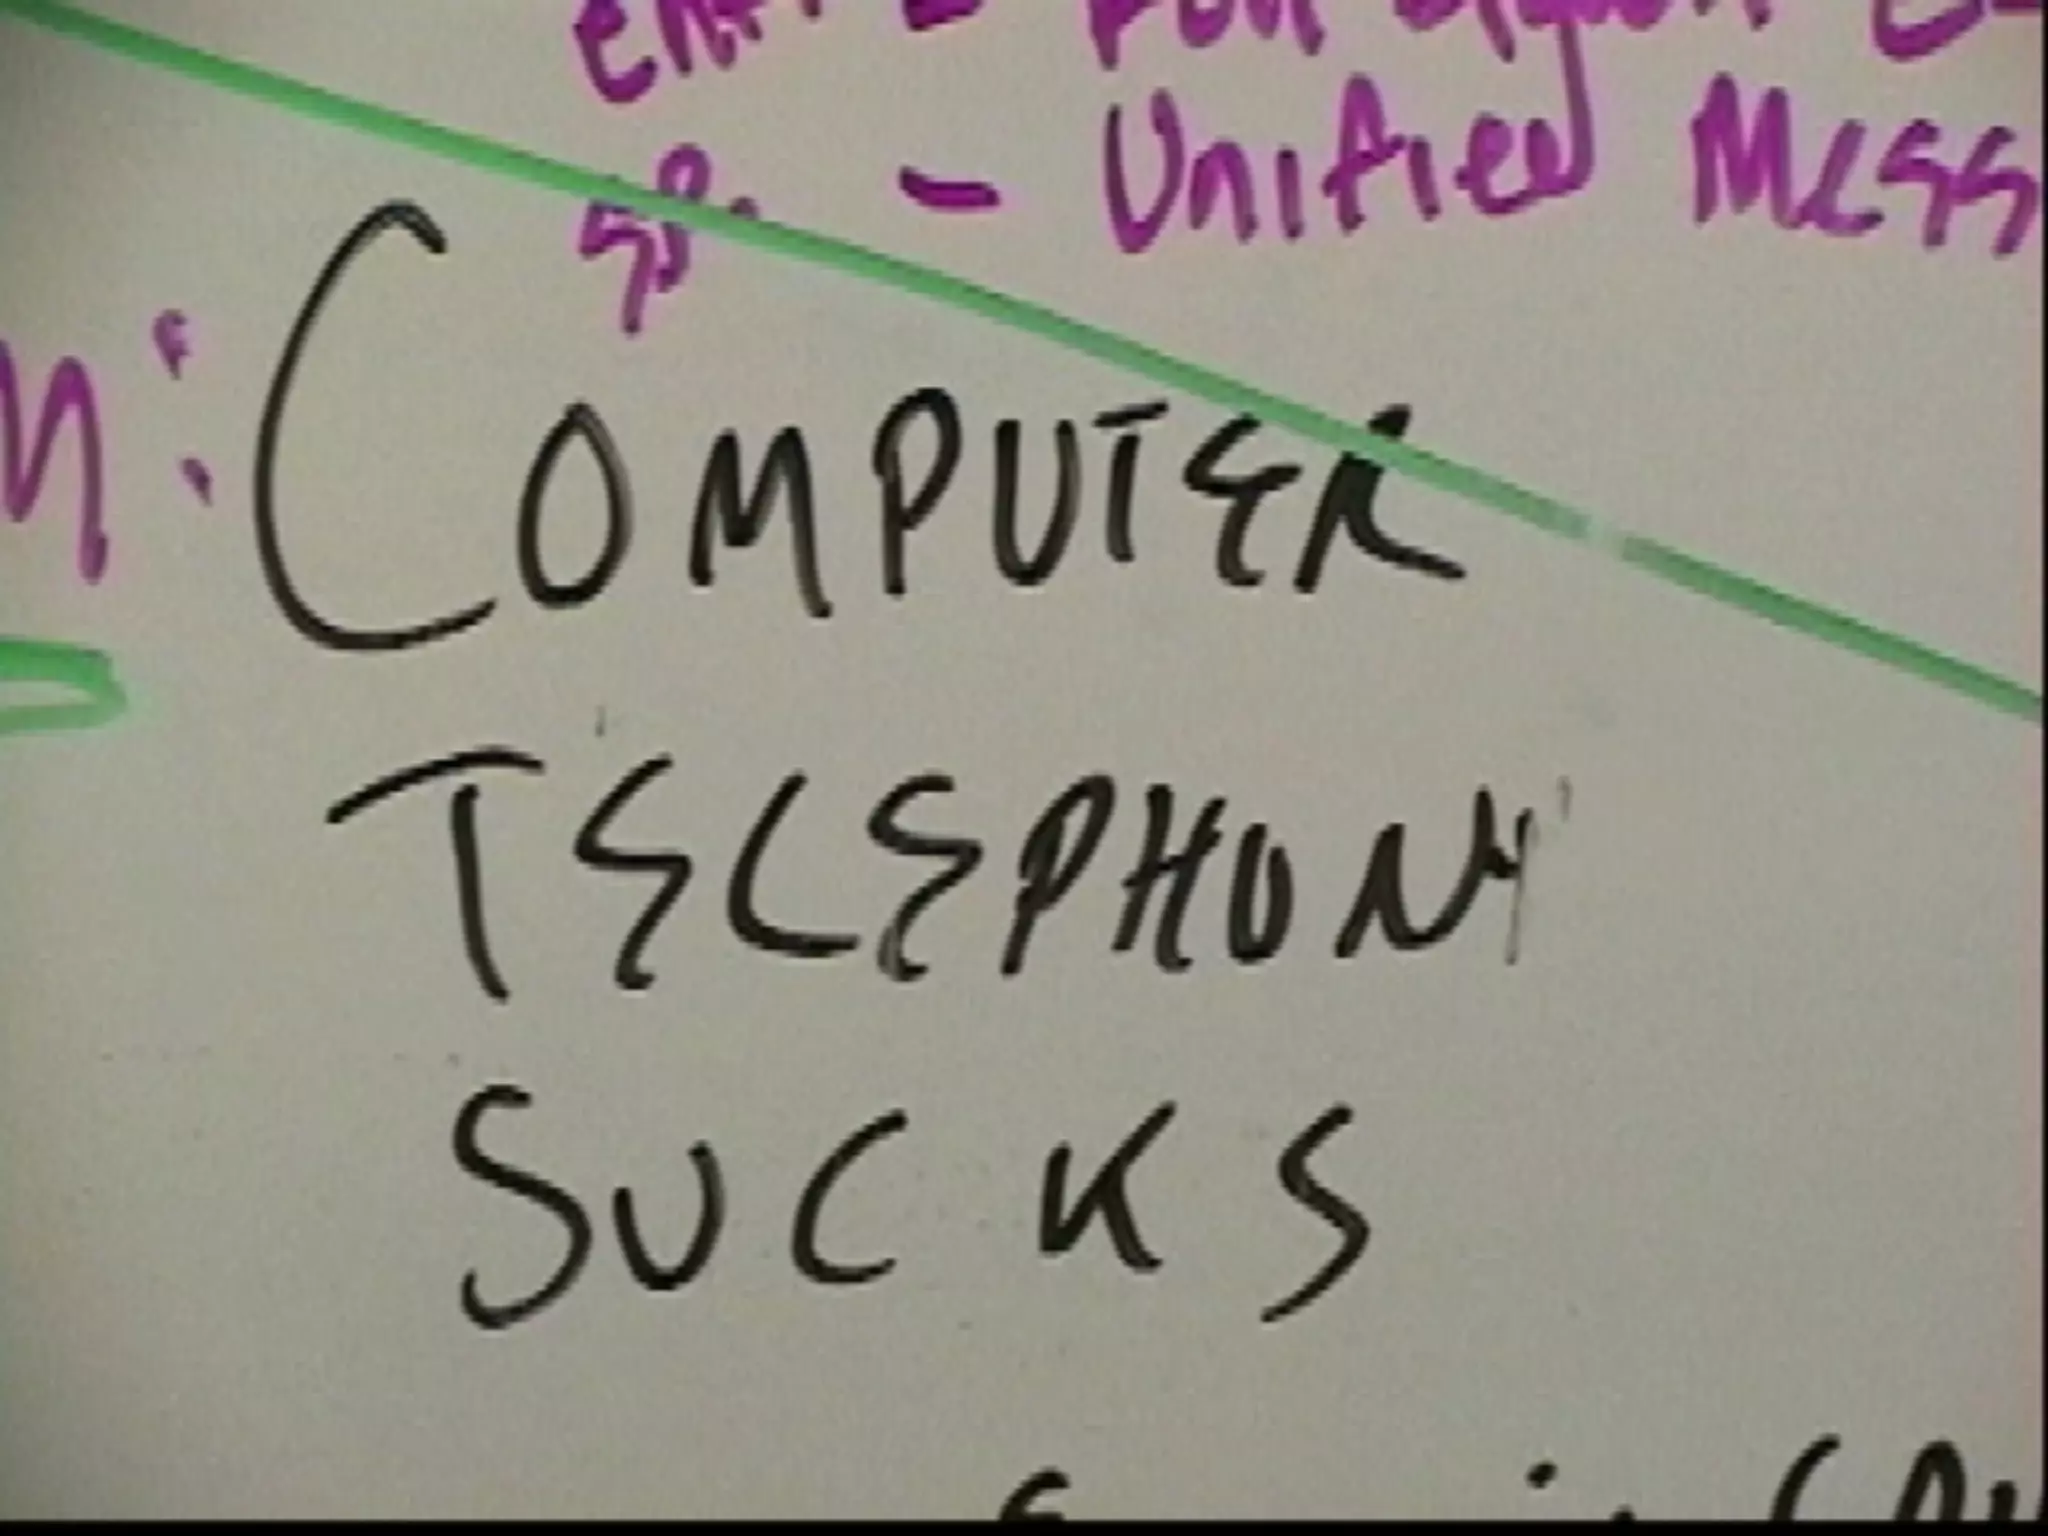 SP. - Unified Mess
n:
COMPUTER
TELEPHONY
SUCKS